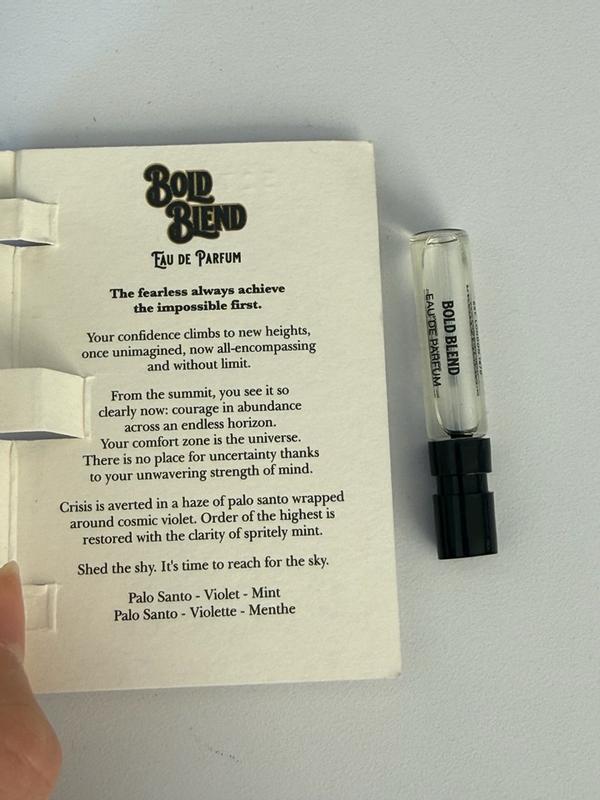 BOLD
BLEND
EAU DE PARFUM
The fearless always achieve
the impossible first.
Your confidence climbs to new heights,
once unimagined, now all-encompassing
and without limit.
From the summit, you see it so
clearly now: courage in abundance
across an endless horizon.
Your comfort zone is the universe.
There is no place for uncertainty thanks
to your unwavering strength of mind.
Crisis is averted in a haze of palo santo wrapped
around cosmic violet. Order of the highest is
restored with the clarity of spritely mint.
Shed the shy. It's time to reach for the sky.
Palo Santo - Violet - Mint
Palo Santo - Violette - Menthe
BOLD BLEND
EAU DE PARFUM